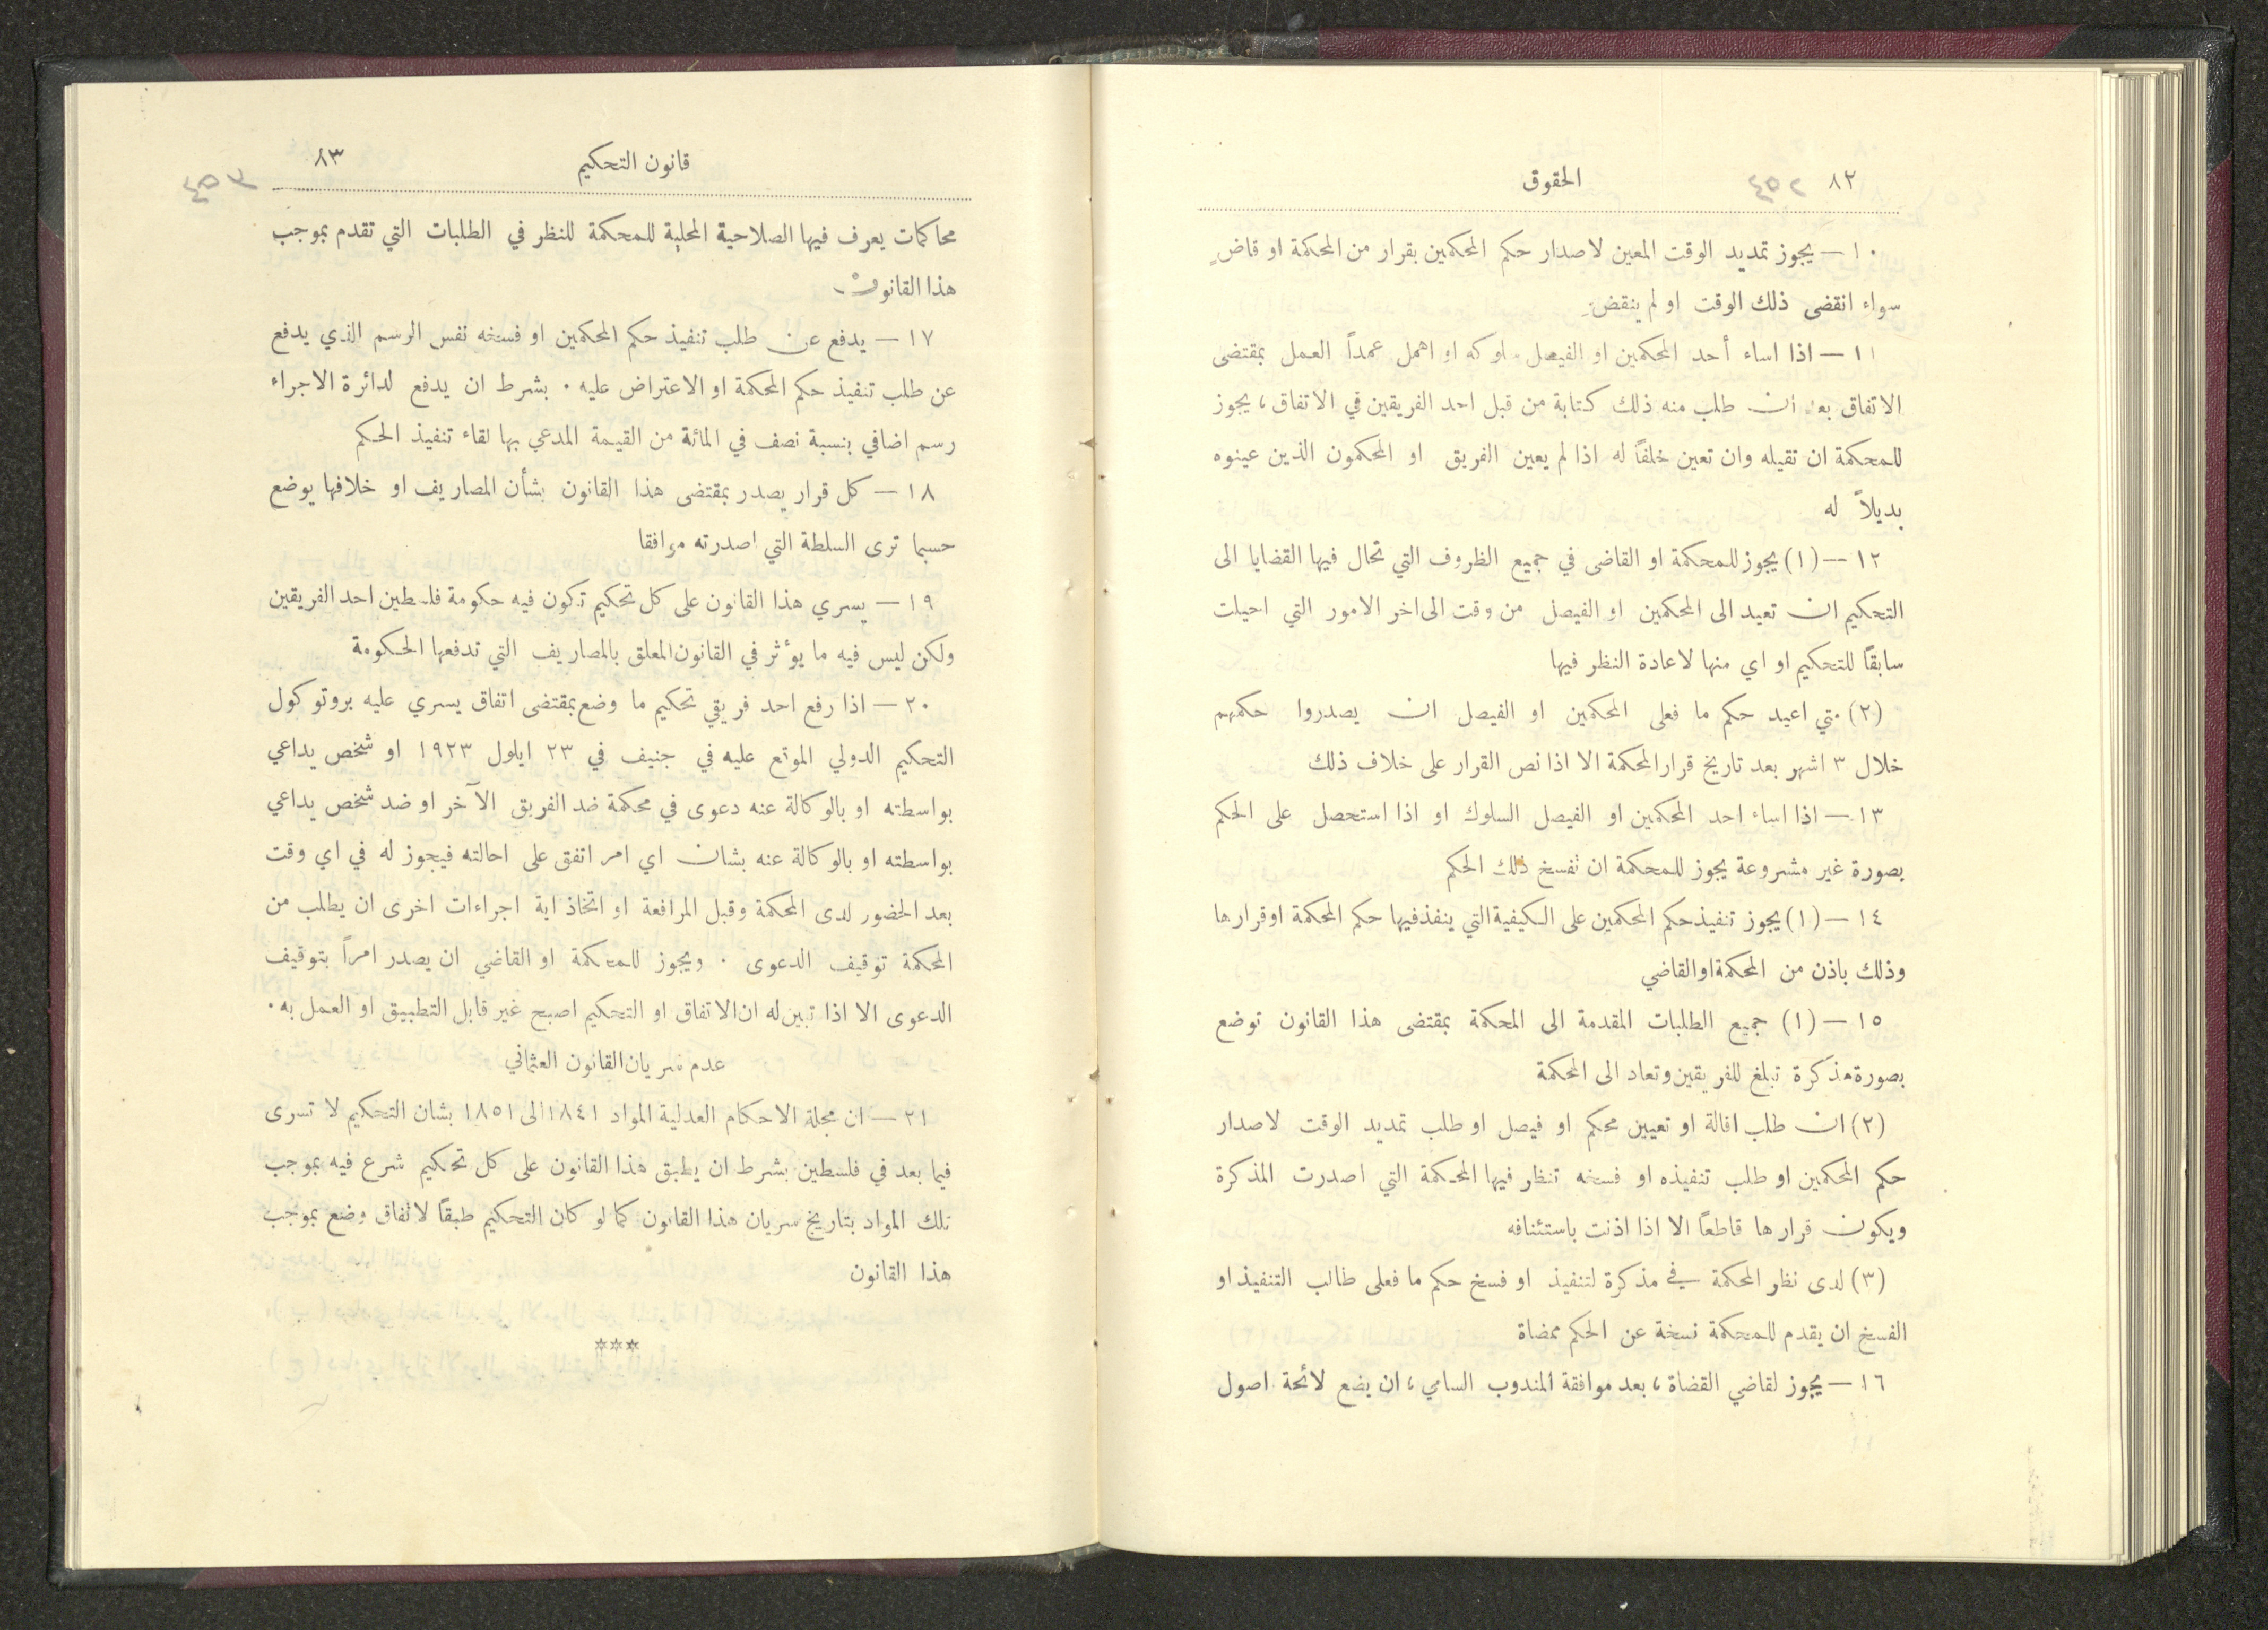 ٨٢ ٤٥٢ الحقوق
١٠ — يجوز تمديد الوقت المعين لاصدار حكم المحكمين بقرار من المحكمة او قاضٍ
سواء انقضى ذلك الوقت او لم ينقض
١١ — اذا اساء أحد المحكمين او الفيصل سلوكه او اهمل عمداً العمل بمقتضى
الاتفاق بعد ان طلب منه ذلك كتابة من قبل احد الفريقين في الاتفاق ، يجوز
للمحكمة ان تقيله وان تعين خلفاً له اذا لم يعين الفريق او المحكمون الذين عينوه
بديلاً له
١٢ — (١) يجوز للمحكمة او القاضى في جميع الظروف التي تحال فيها القضايا الى
التحكيم ان تعيد الى المحكمين او الفيصل من وقت الى اخر الامور التي احيلت
سابقاً للتحكيم او اي منها لاعادة النظر فيها
(٢) متي اعيد حكم ما فعلى المحكمين او الفيصل ان يصدروا حكمهم
خلال ٣ اشهر بعد تاريخ قرار المحكمة الا اذا نص القرار على خلاف ذلك
١٣ — اذا اساء احد المحكمين او الفيصل السلوك او اذا استحصل على الحكم
بصورة غير مشروعة يجوز للمحكمة ان تفسخ ذلك الحكم
١٤ — (١) يجوز تنفيذ حكم المحكمين على الكيفية التي ينفذ فيها حكم المحكمة او قرارها
وذلك باذن من المحكمة او القاضي
١٥ — (١) جميع الطلبات المقدمة الى المحكمة بمقتضى هذا القانون توضع
بصورة مذكرة تبلغ للفريقين وتعاد الى المحكمة
(٢) ان طلب اقالة او تعيين محكم او فيصل او طلب تمديد الوقت لاصدار
حكم المحكمين او طلب تنفيذه او فسخه تنظر فيها المحكمة التي اصدرت المذكرة
ويكون قرارها قاطعاً الا اذا اذنت باستئنافه
(٣) لدى نظر المحكمة في مذكرة لتنفيذ او فسخ حكم ما فعلى طالب التنفيذ او
الفسخ ان يقدم للمحكمة نسخة عن الحكم ممضاة
١٦ — يجوز لقاضي القضاة ، بعد موافقة المندوب السامي ، ان يضع لائحة اصول
قانون التحكيم ٨٣
٤٥٣
محاكمات يعرف فيها الصلاحية المحلية للمحكمة للنظر في الطلبات التي تقدم بموجب
هذا القانون
١٧ — يدفع عن طلب تنفيذ حكم المحكمين او فسخه نفس الرسم الذي يدفع
عن طلب تنفيذ حكم المحكمة او الاعتراض عليه . بشرط ان يدفع لدائرة الاجراء
رسم اضافي بنسبة نصف في المائة من القيمة المدعي بها لقاء تنفيذ الحكم
١٨ — كل قرار يصدر بمقتضى هذا القانون بشأن المصاريف او خلافها يوضع
حسبما ترى السلطة التي اصدرته موافقا
١٩ — يسري هذا القانون على كل تحكيم تكون فيه حكومة فلسطين احد الفريقين
ولكن ليس فيه ما يوءثر في القانون المعلق بالمصاريف التي تدفعها الحكومة
٢٠ — اذا رفع احد فريقي تحكيم ما وضع بمقتضى اتفاق يسري عليه بروتوكول
التحكيم الدولي الموقع عليه في جنيف في ٢٣ ايلول ١٩٢٣ او شخص يداعي
بواسطته او بالوكالة عنه دعوى في محكمة ضد الفريق الآخر او ضد شخص يداعي
بواسطته او بالوكالة عنه بشان اي امر اتفق على احالته فيجوز له في اي وقت
بعد الحضور لدى المحكمة وقبل المرافعة او اتخاذ اية اجراءات اخرى ان يطلب من
المحكمة توقيف الدعوى . ويجوز للمحكمة او القاضي ان يصدر امراً بتوقيف
الدعوى الا اذا تبين له ان الاتفاق او التحكيم اصبح غير قابل التطبيق او العمل به .
عدم سريان القانون العثماني
٢١ — ان مجلة الاحكام العدلية المواد ١٨٤١ الى ١٨٥١ بشان التحكيم لا تسرى
فيما بعد في فلسطين بشرط ان يطبق هذا القانون على كل تحكيم شرع فيه بموجب
تلك المواد بتاريخ سريان هذا القانون كما لو كان التحكيم طبقاً لاتفاق وضع بموجب
هذا القانون
***